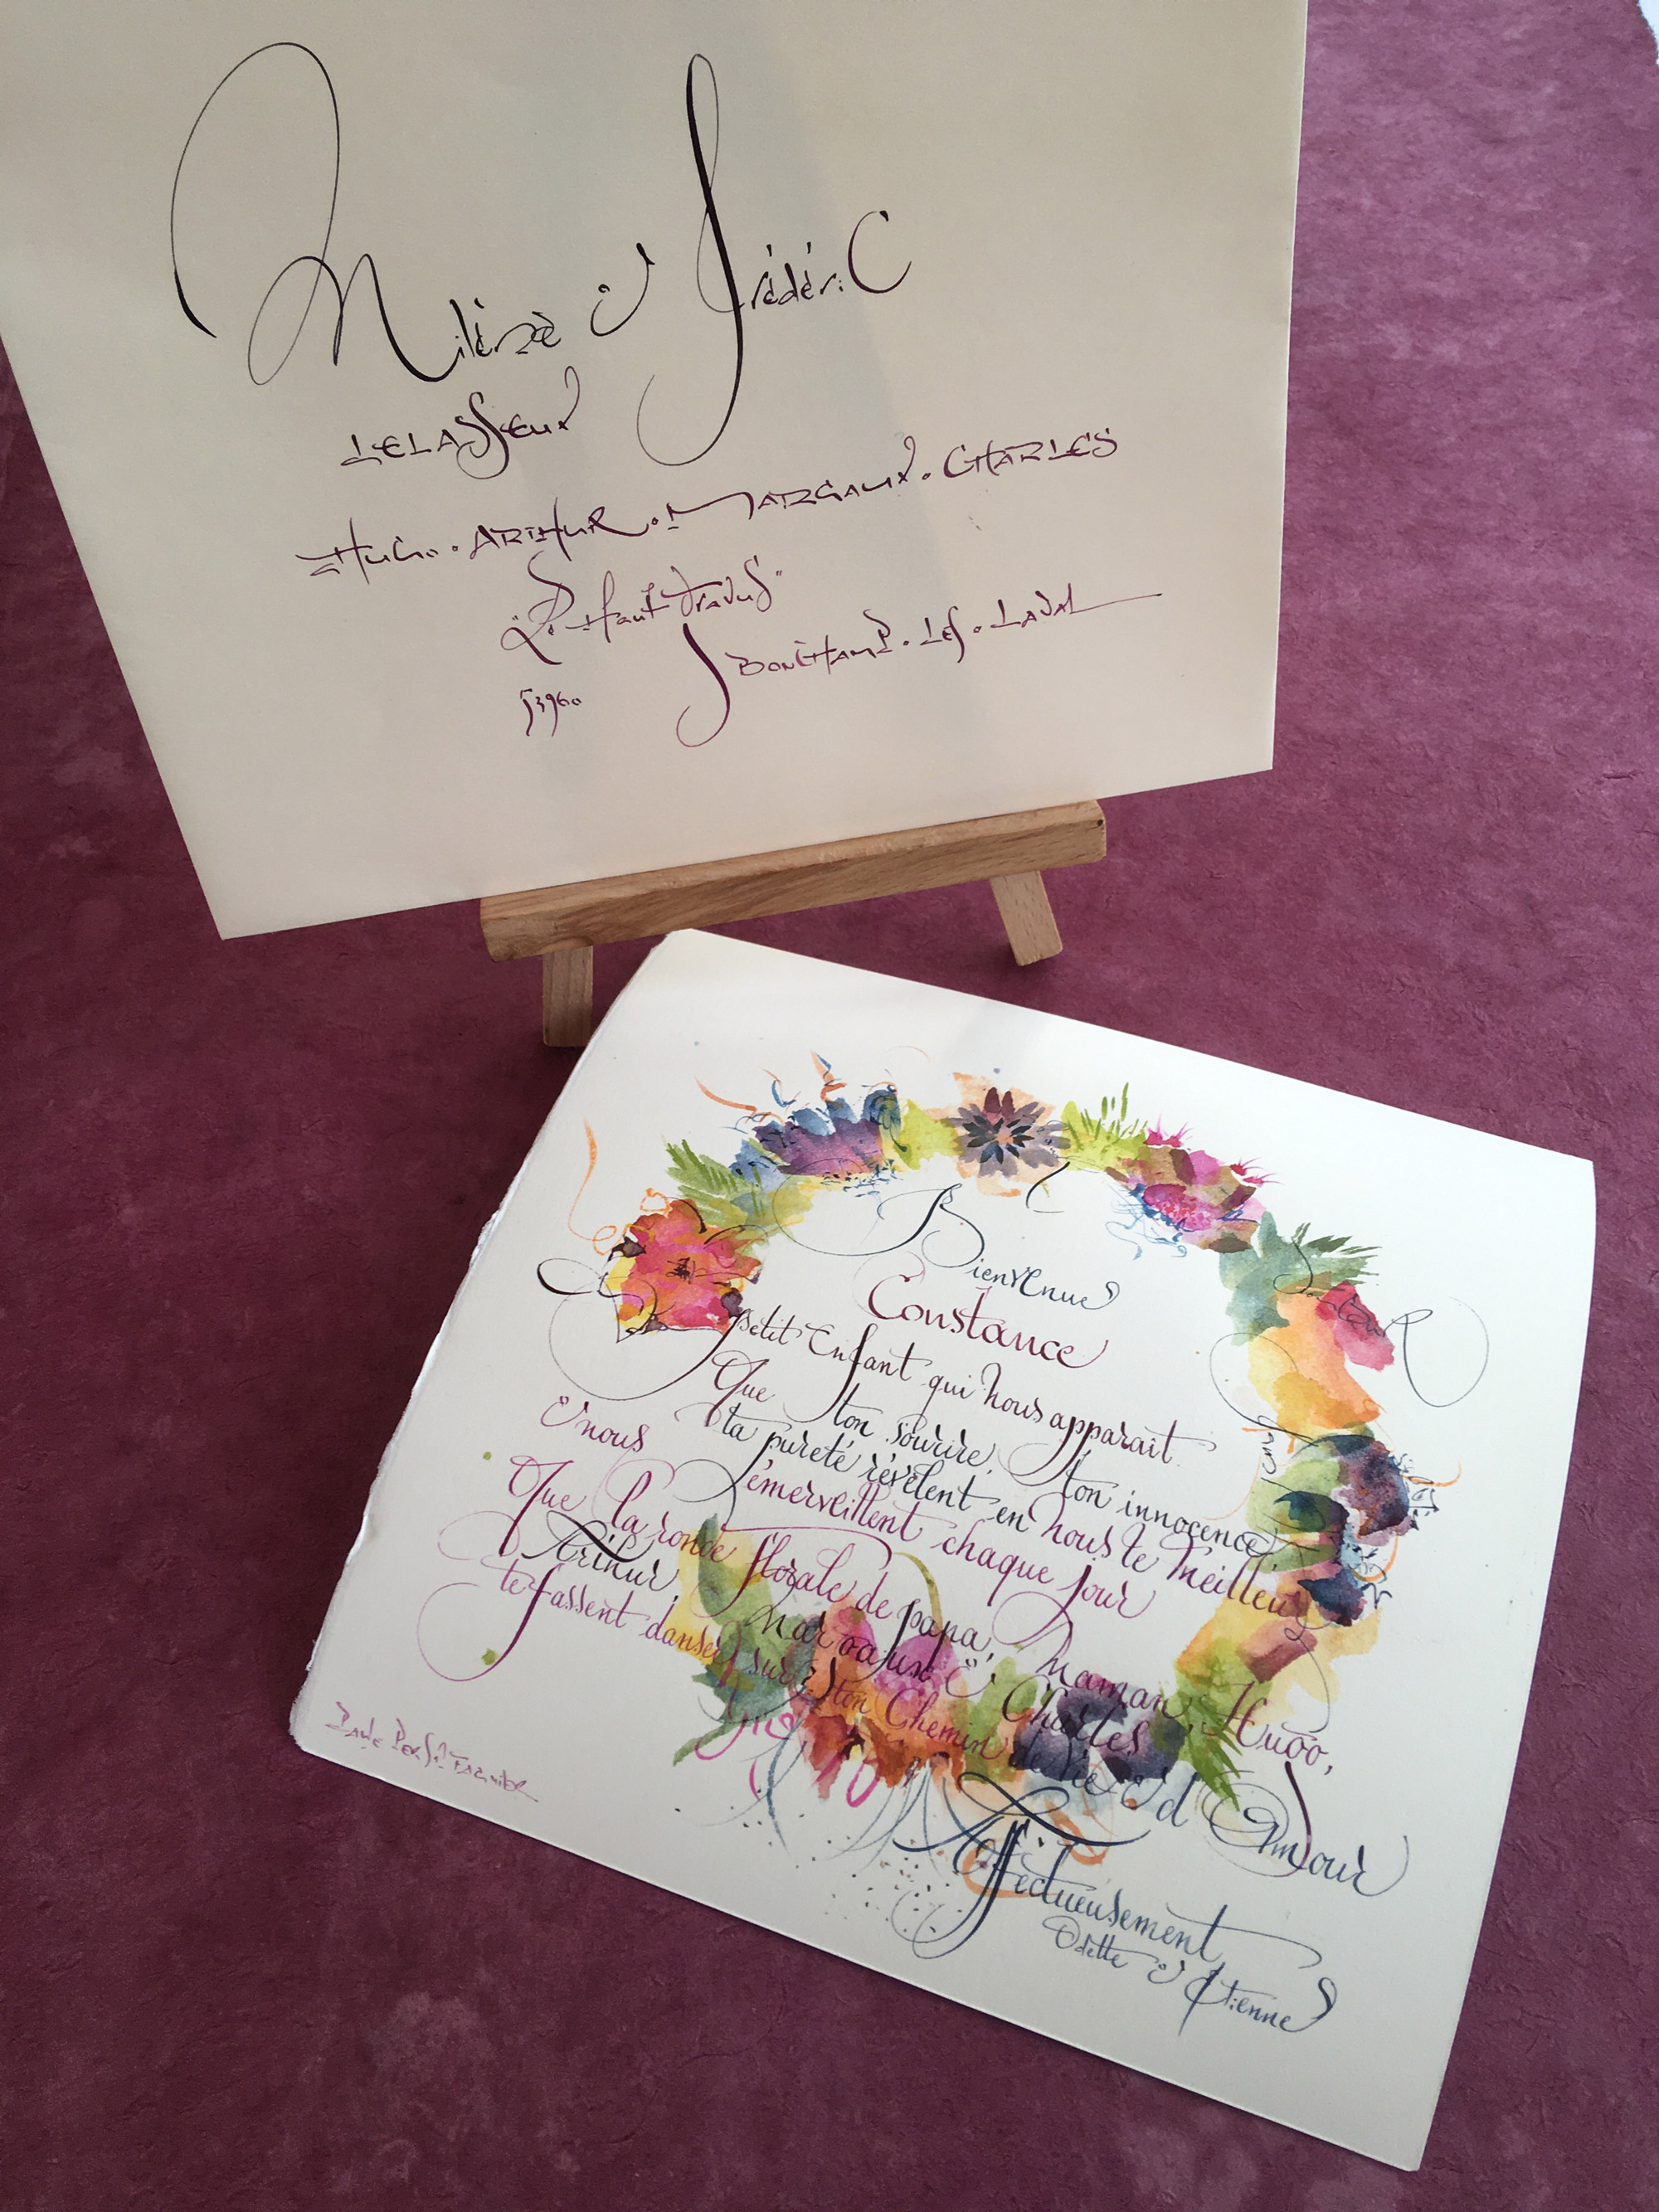 & Frédéric
LELASSEUX
HUGO . ARTHUR . MARGAUX . CHARLES
"Le Haut Travus"
53960 BONCHAMP . LES . LAVAL
Bienvenue
Constance
petit Enfant qui nous apparait.
Que ton sourire, ton innocence,
ta pureté révèlent en nous le meilleur
& nous émerveillent chaque jour
Que la ronde florale de papa, maman, Hugo,
Arthur, Margaux & Charles
te fassent danser sur ton Chemin de Vie & d'Amour
Affectueusement
Odette & Étienne